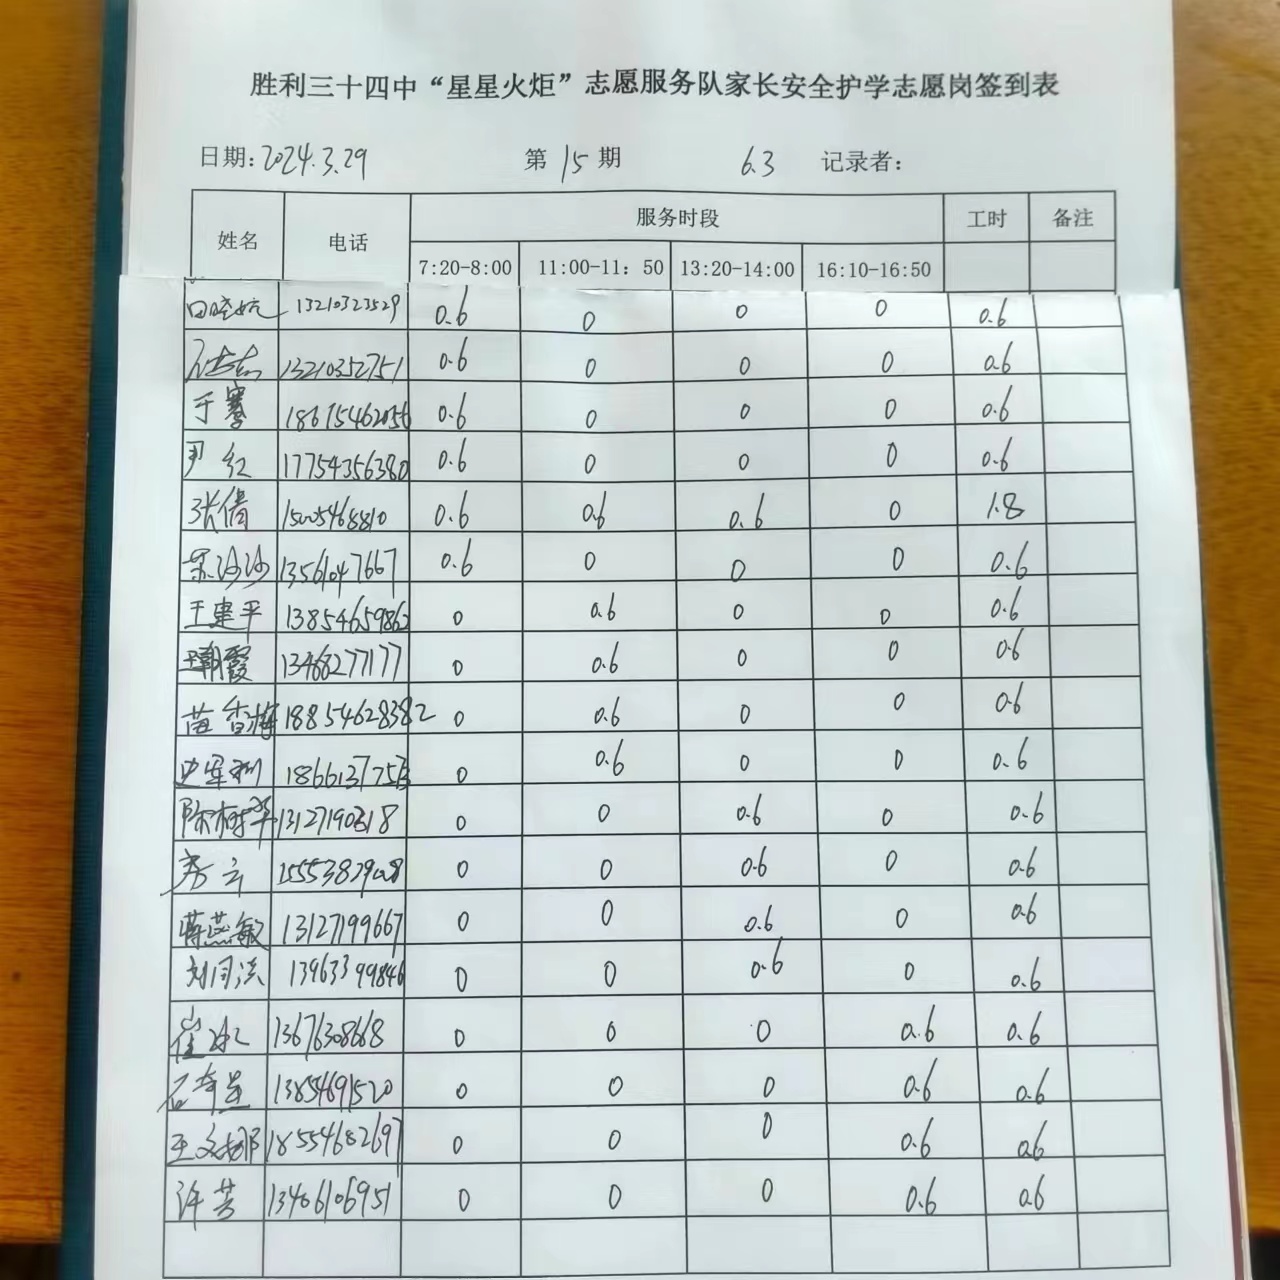 胜利三十四中“星星火炬”志愿服务队家长安全护学志愿岗签到表
日期:2024.3.29 第15期 6.3 记录者:
姓名 电话 服务时段 工时 备注
7:20-8:00 11:00-11：50 13:20-14:00 16:10-16:50
田晓航 13210323529 0.6 0 0 0 0.6
13210352751 0.6 0 0 0 0.6
于骞 18615462056 0.6 0 0 0 0.6
尹红 17754356380 0.6 0 0 0 0.6
张倩 15005468810 0.6 0.6 0.6 0 1.8
荣沙沙 13561047667 0.6 0 0 0 0.6
王建平 13854659862 0 0.6 0 0 0.6
霞 13468277177 0 0.6 0 0 0.6
苗香梅 18854628382 0 0.6 0 0 0.6
史军利 0 0.6 0 0 0.6
陈树华 13127190318 0 0 0.6 0 0.6
云 0 0 0.6 0 0.6
蒋燕敏 13127199667 0 0 0.6 0 0.6
刘同法 13963399846 0 0 0.6 0 0.6
崔冰 13676308668 0 0 0 0.6 0.6
石奇星 13854691520 0 0 0 0.6 0.6
王文娜 18554682697 0 0 0 0.6 0.6
许芳 13406106951 0 0 0 0.6 0.6